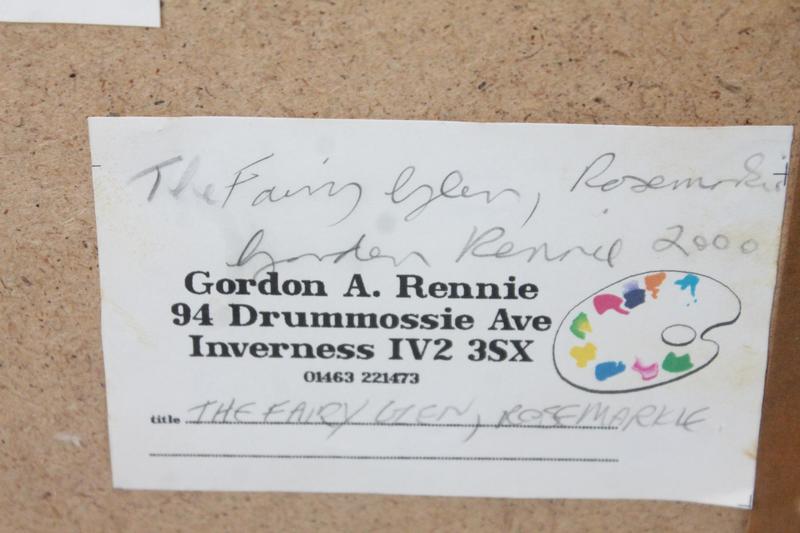 The Fairy Glen, Rosemarkie
Gordon Rennie 2000
Gordon A. Rennie
94 Drummossie Ave
Inverness IV2 3SX
01463 221473
title THE FAIRY GLEN, ROSEMARKIE